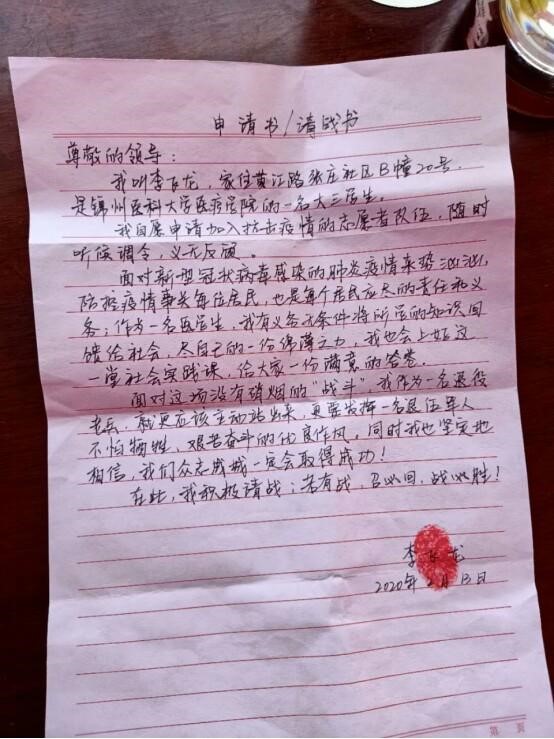 申请书/请战书
尊敬的领导：
我叫李飞龙，家住黄江路张庄社区B幢20号，
是锦州医科大学医疗学院的一名大三学生。
我自愿申请加入抗击疫情的志愿者队伍，随时
听候调令，义无反顾。
面对新型冠状病毒感染的肺炎疫情来势汹汹，
防控疫情事关每位居民，也是每个居民应尽的责任和义
务；作为一名医学生，我有义务无条件将所学的知识回
馈给社会，尽自己的一份绵薄之力，我也会上好这
一堂社会实践课，给大家一份满意的答卷。
面对这场没有硝烟的“战斗”，我作为一名退役
老兵，就更应该主动站出来，更要发挥一名退伍军人
不怕牺牲、艰苦奋斗的优良作风，同时我也坚定地
相信，我们众志成城一定会取得成功！
在此，我积极请战；若有战，召必回，战必胜！
李飞龙
2020年2月13日
第 页